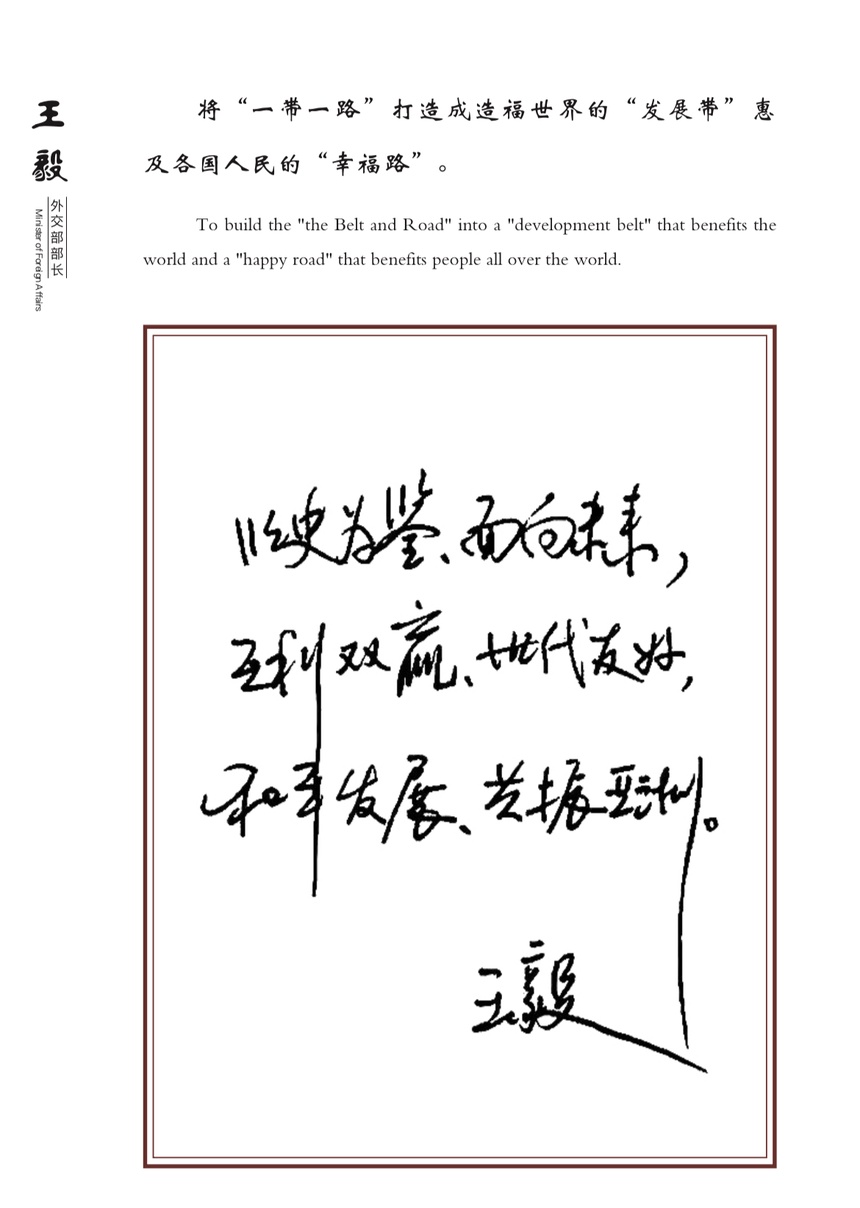 王毅
外交部部长
Minister of Foreign Affairs
将“一带一路”打造成造福世界的“发展带”惠
及各国人民的“幸福路”。
To build the "the Belt and Road" into a "development belt" that benefits the
world and a "happy road" that benefits people all over the world.
以史为鉴、面向未来，
互利双赢、世代友好，
和平发展、共振亚洲。
王毅